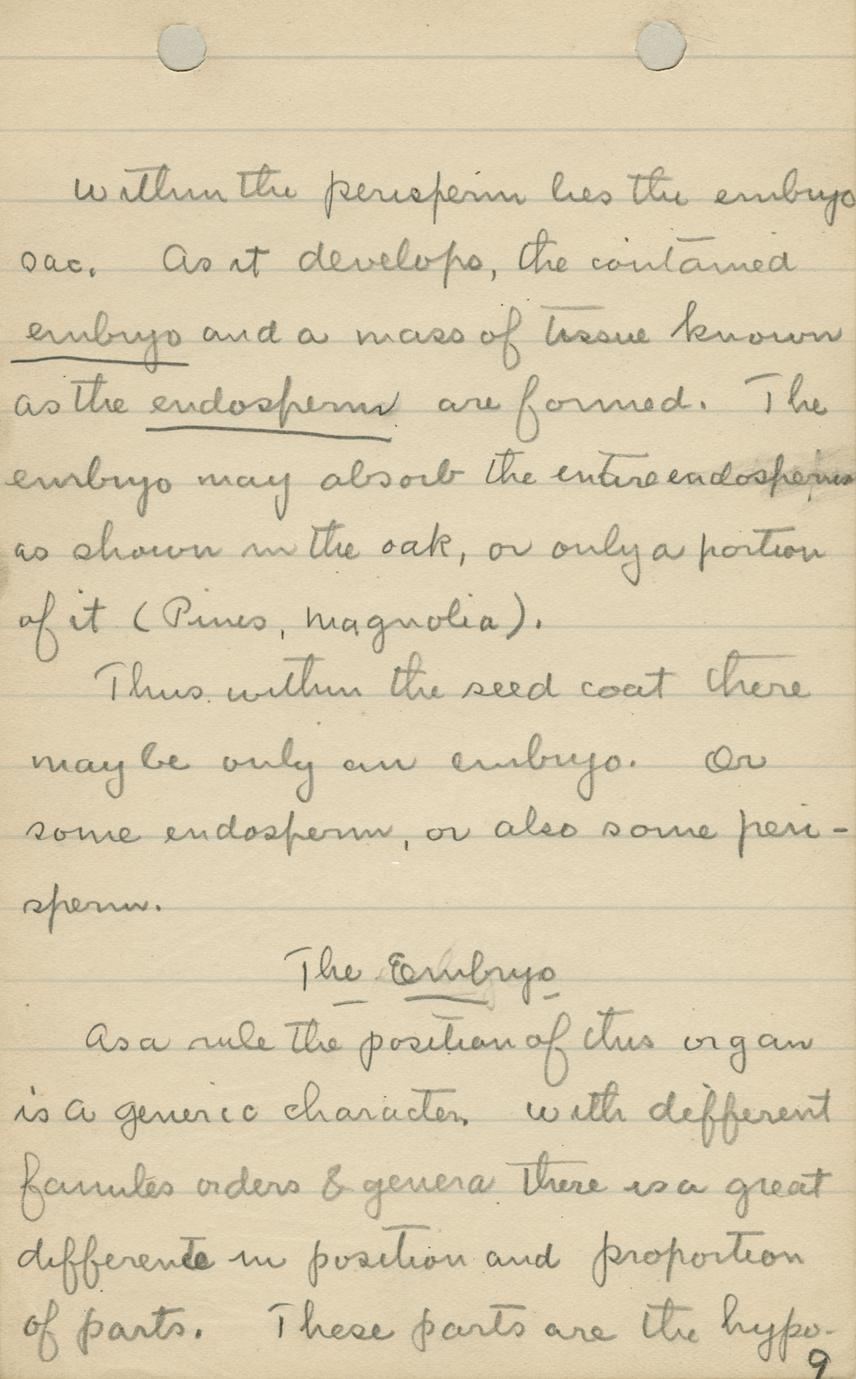 Within the perisperm lies the embryo
sac. As it develops, the contained
embryo and a mass of tissue known
as the endosperm are formed. The
embryo may absorb the entire endosperm
as shown in the oak, or only a portion
of it (Pines, Magnolia).
Thus within the seed coat there
may be only an embryo. Or
some endosperm, or also some peri-
sperm.
The Embryo
As a rule the position of this organ
is a generic character. With different
families orders & genera there is a great
difference in position and proportion
of parts. These parts are the hypo-
9